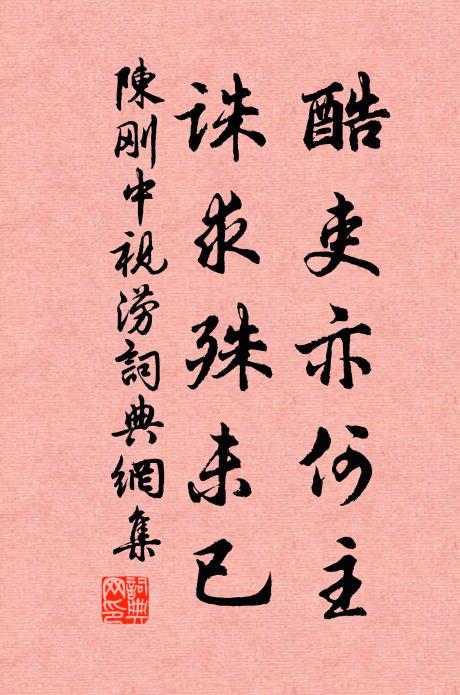 酷吏亦何主
誅求殊未已
陳剛中視澇詞典網集
詞典
網印